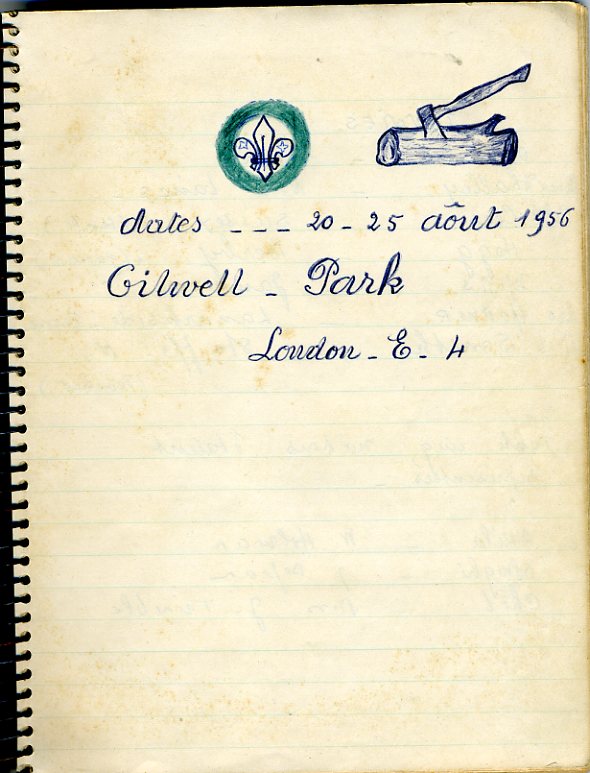 dates _ _ _ 20 - 25 aôut 1956
Gilwell - Park
London - E - 4